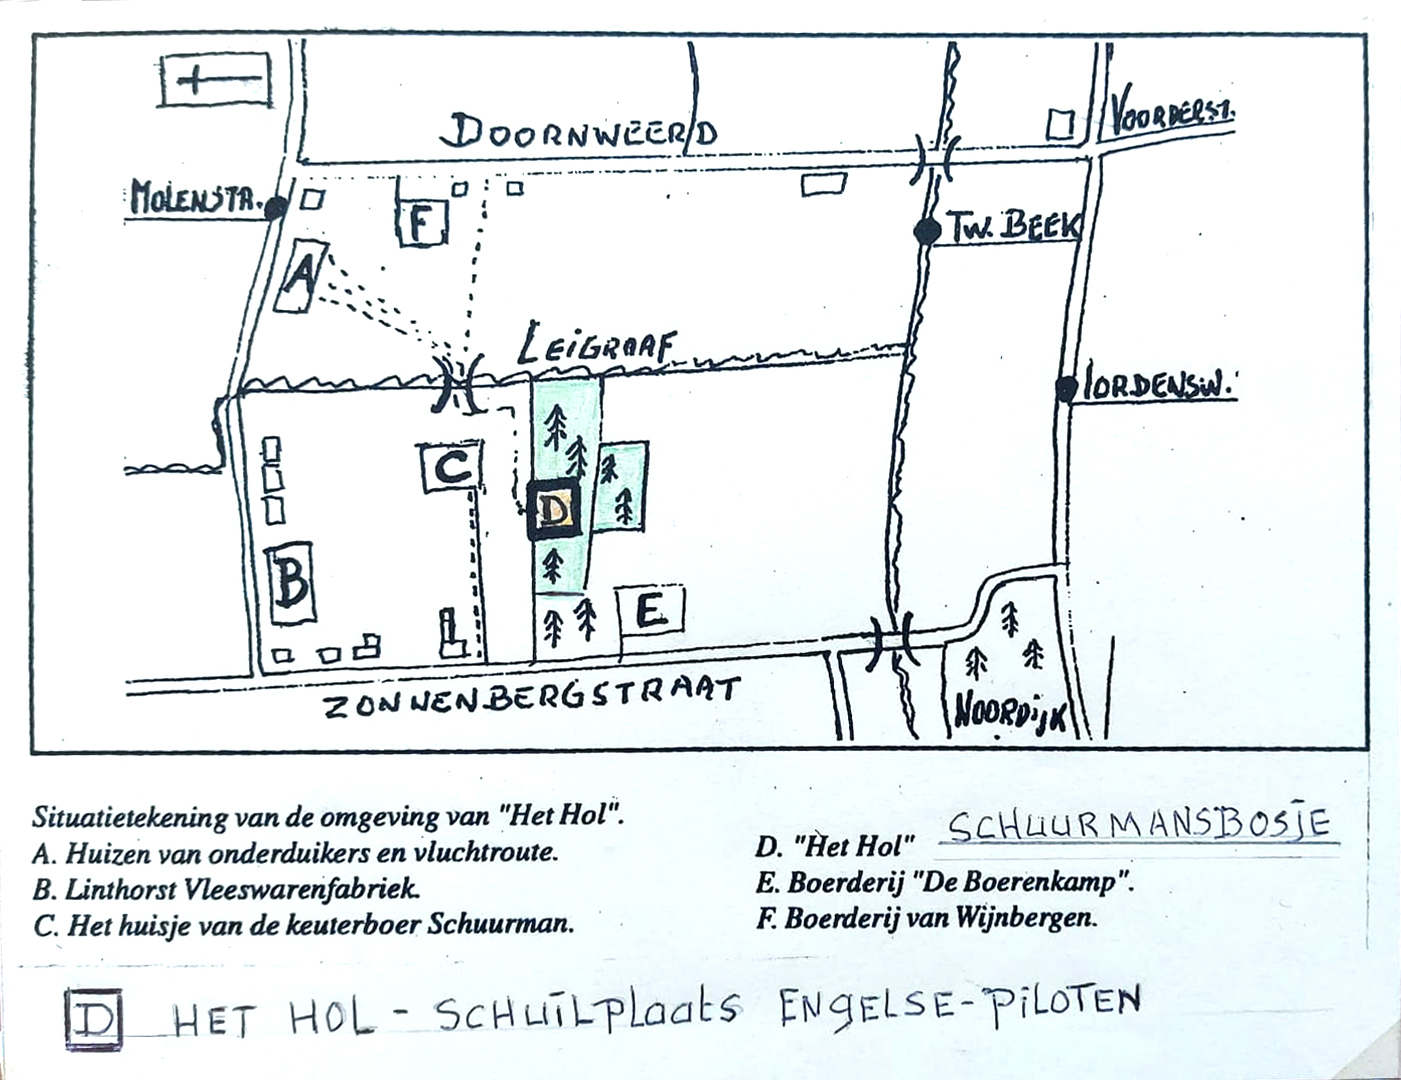 DOORNWEERD
VOORDERST.
MOLENSTR.
F
TW. BEEK
A
LEIGRAAF
IORDENSW.
C
D
B
E
ZONNENBERGSTRAAT
NOORDIJK
Situatietekening van de omgeving van "Het Hol".
A. Huizen van onderduikers en vluchtroute.
B. Linthorst Vleeswarenfabriek.
C. Het huisje van de keuterboer Schuurman.
D. "Het Hol" SCHUURMANSBOSJE
E. Boerderij "De Boerenkamp".
F. Boerderij van Wijnbergen.
D HET HOL - SCHUILPLaatS ENgELSE-PiLOTEN